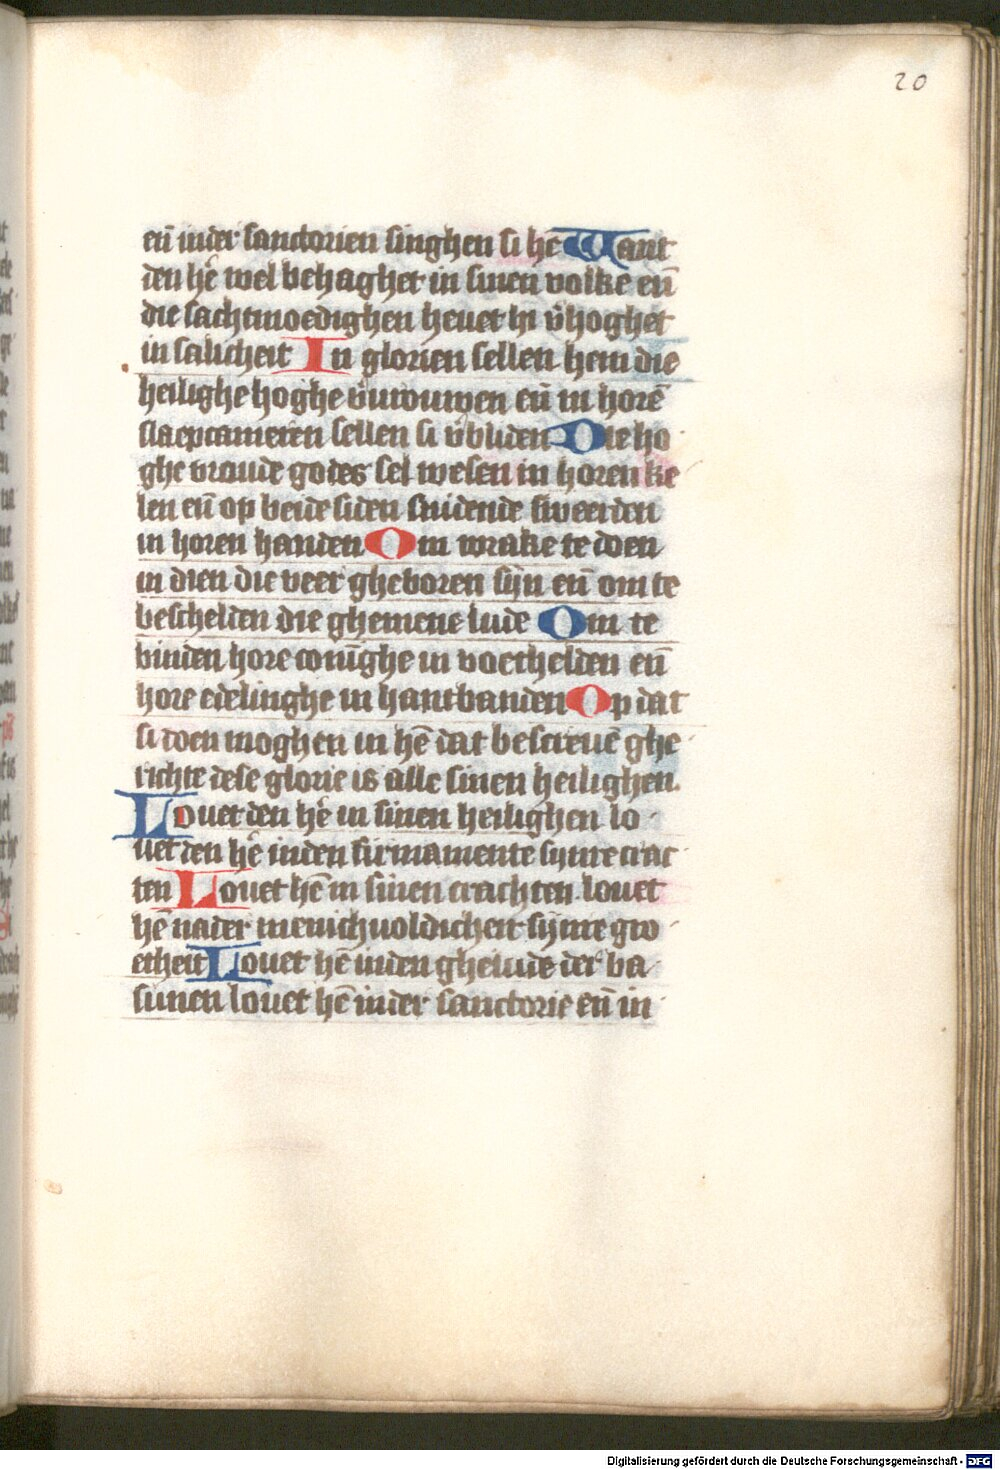 20
eñ inder sanctorien singhen si hē Want
den hē wel behaghet in sinen volke eñ
die sachtmoedighen heuet hi v̄hoghet
in salicheit In glorien sellen hem die
heilighe hoghe v̄urouwen eñ in horē
slaepcameren sellen si v̄bliden Die ho
ghe vroude godes sel wesen in horen ke
len eñ op beide siden snidende sweerden
in horen handen Om wrake te doen
in dien die veer gheboren sijn eñ om te
beschelden die ghemene lude Om te
binden hore coniṅghe in voethelden eñ
hore edelinghe in hantbanden Op dat
si doen moghen in hē dat bescreuē ghe
richte dese glorie is alle sinen heilighen.
Louet den hē in sinen heilighen lo
uet den hē inden firmamente synre crac
ten Louet hē in sinen crachten. louet
hē nader menichuoldicheit sijnre gro
etheit Louet hē inden ghelude der ba
sunen louet hē inder sanctorie eñ in
Digitalisierung gefördert durch die Deutsche Forschungsgemeinschaft - DFG